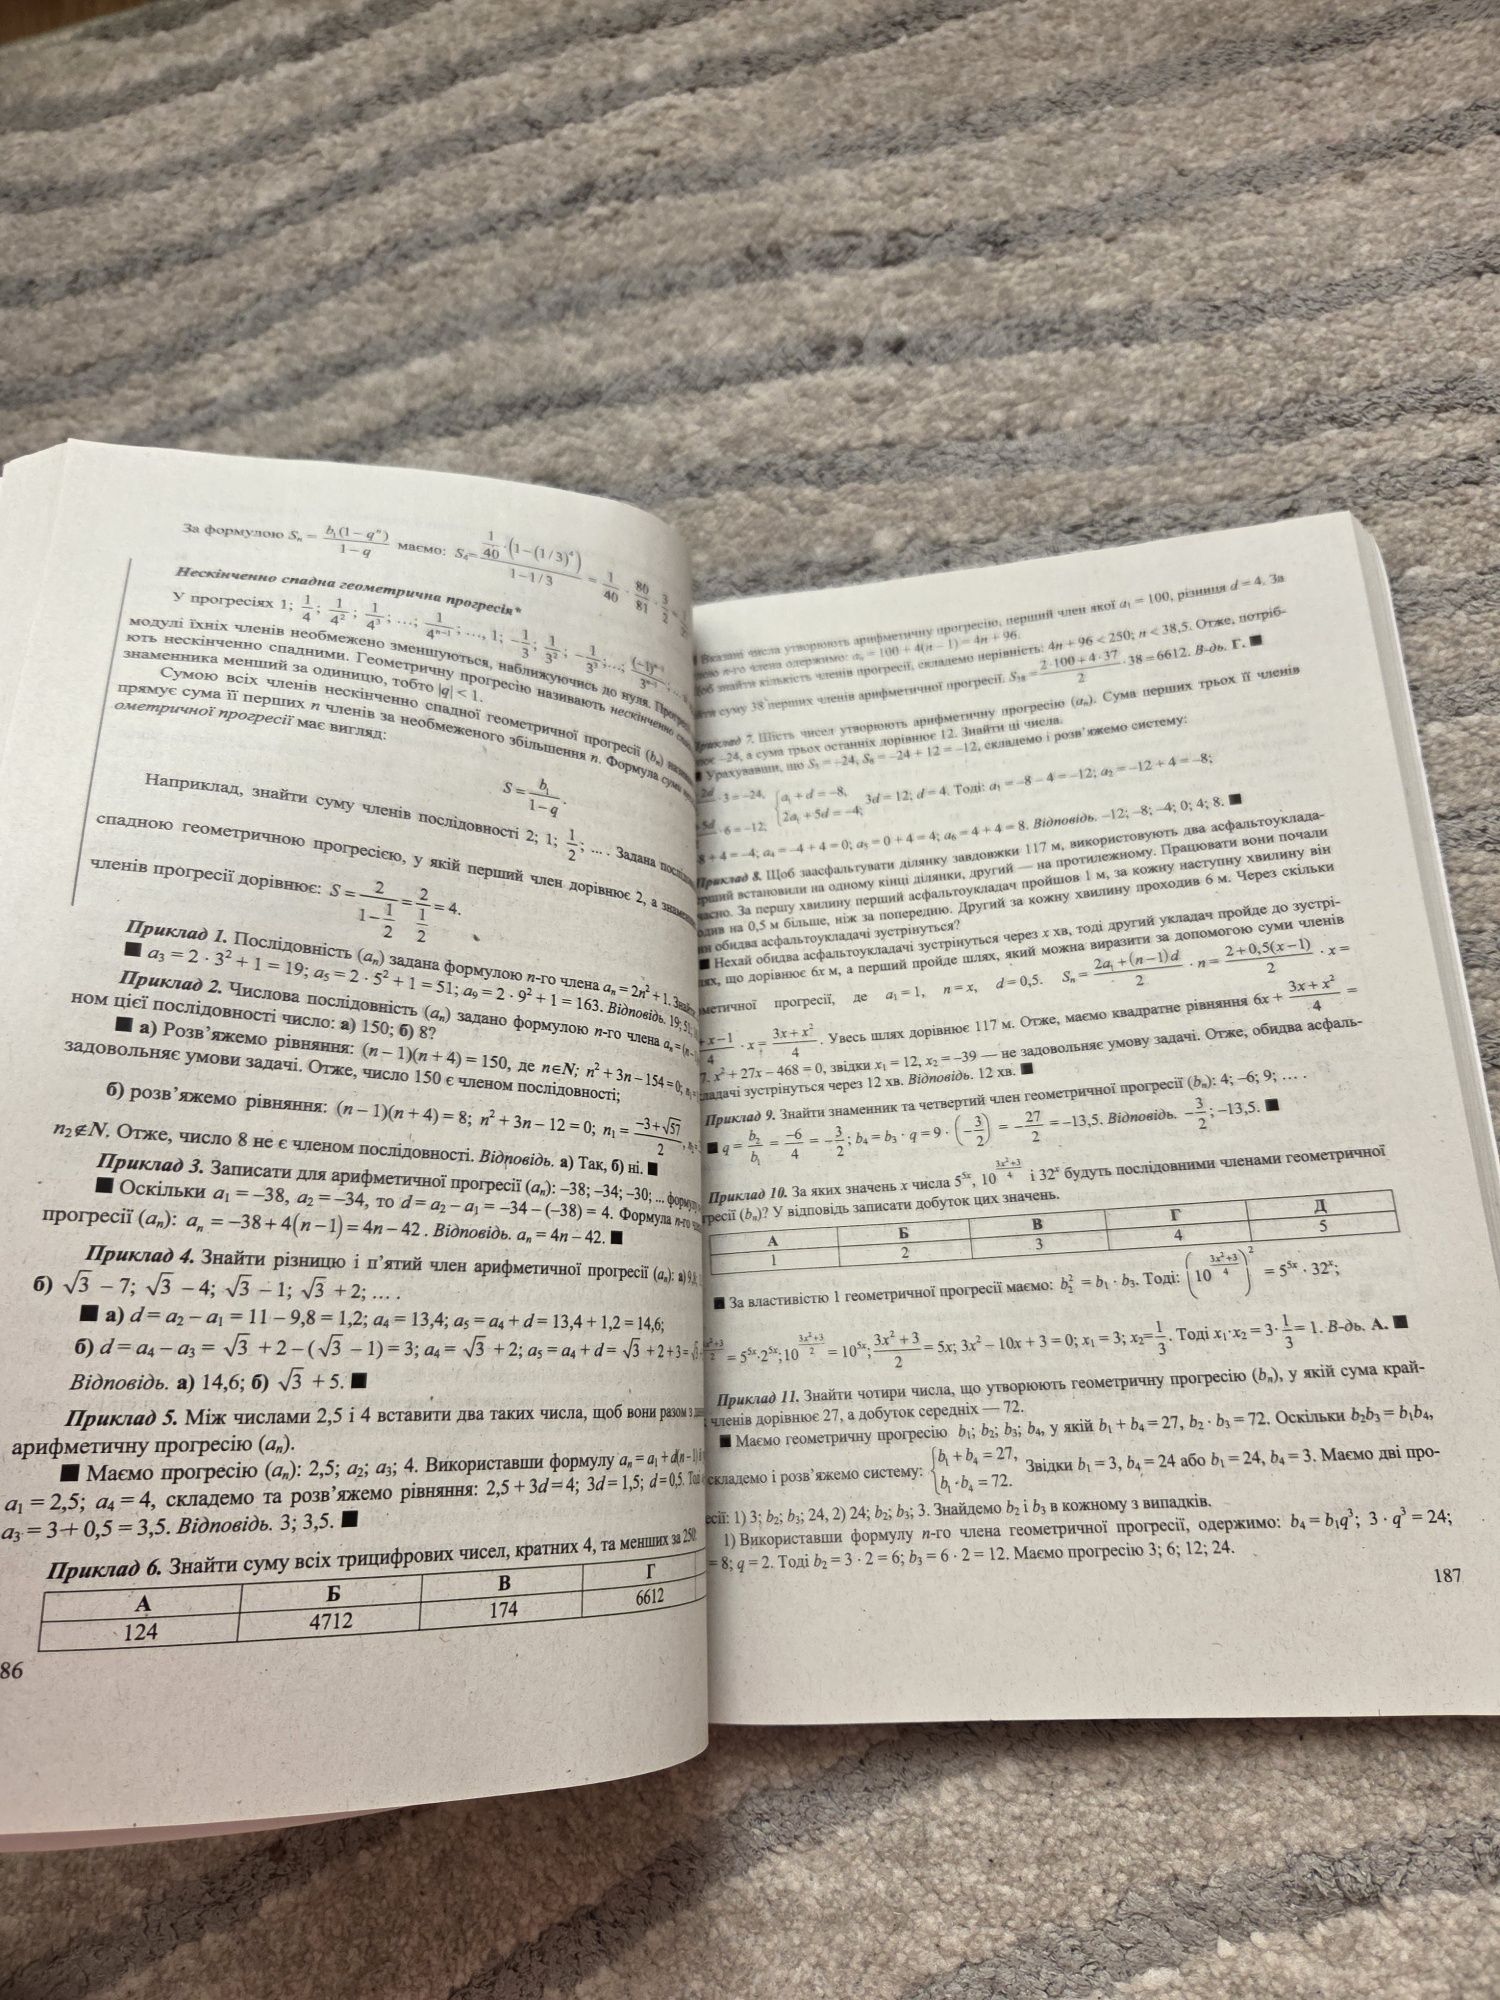 За формулою Sₙ = b₁(1 − qⁿ)/(1 − q) маємо: S₄ = (1/40 · (1−(1/3)⁴))/(1−1/3) = 1/40 · 80/81 · 3/2 =
Нескінченно спадна геометрична прогресія*
У прогресіях 1; 1/4; 1/4²; 1/4³; …; 1/4ⁿ⁻¹; …, 1; −1/3; 1/3²; −1/3³; …; (−1)ⁿ⁻¹/3ⁿ⁻¹; …
модулі їхніх членів необмежено зменшуються, наближуючись до нуля.
ють нескінченно спадними. Геометричну прогресію називають нескінченно
знаменника менший за одиницю, тобто |q| < 1.
Сумою всіх членів нескінченно спадної геометричної прогресії (bₙ)
прямує сума її перших n членів за необмеженого збільшення n. Формула суми
ометричної прогресії має вигляд:
S = b₁/(1 − q).
Наприклад, знайти суму членів послідовності 2; 1; 1/2; … . Задана
спадною геометричною прогресією, у якій перший член дорівнює 2, а
членів прогресії дорівнює: S = 2/(1 − 1/2) = 2/(1/2) = 4.
Приклад 1. Послідовність (aₙ) задана формулою n-го члена aₙ = 2n² + 1.
■ a₃ = 2 · 3² + 1 = 19; a₅ = 2 · 5² + 1 = 51; a₉ = 2 · 9² + 1 = 163. Відповідь. 19; 51;
Приклад 2. Числова послідовність (aₙ) задано формулою n-го члена aₙ = (n −
ном цієї послідовності число: а) 150; б) 8?
■ а) Розв’яжемо рівняння: (n − 1)(n + 4) = 150, де n∈N; n² + 3n − 154 = 0;
задовольняє умови задачі. Отже, число 150 є членом послідовності;
б) розв’яжемо рівняння: (n − 1)(n + 4) = 8; n² + 3n − 12 = 0; n₁ = (−3 + √57)/2,
n₂∉N. Отже, число 8 не є членом послідовності. Відповідь. а) Так, б) ні. ■
Приклад 3. Записати для арифметичної прогресії (aₙ): –38; –34; –30; ...
■ Оскільки a₁ = –38, a₂ = –34, то d = a₂ – a₁ = –34 – (–38) = 4. Формула n-го
прогресії (aₙ): aₙ = −38 + 4(n − 1) = 4n − 42. Відповідь. aₙ = 4n – 42. ■
Приклад 4. Знайти різницю і п’ятий член арифметичної прогресії (aₙ): а) 9,8;
б) √3 – 7; √3 – 4; √3 – 1; √3 + 2; … .
■ а) d = a₂ – a₁ = 11 – 9,8 = 1,2; a₄ = 13,4; a₅ = a₄ + d = 13,4 + 1,2 = 14,6;
б) d = a₄ – a₃ = √3 + 2 – (√3 – 1) = 3; a₄ = √3 + 2; a₅ = a₄ + d = √3 + 2 + 3 =
Відповідь. а) 14,6; б) √3 + 5. ■
Приклад 5. Між числами 2,5 і 4 вставити два таких числа, щоб вони разом з
арифметичну прогресію (aₙ).
■ Маємо прогресію (aₙ): 2,5; a₂; a₃; 4. Використавши формулу aₙ = a₁ + d(n − 1)
a₁ = 2,5; a₄ = 4, складемо та розв’яжемо рівняння: 2,5 + 3d = 4; 3d = 1,5; d = 0,5.
a₃ = 3 + 0,5 = 3,5. Відповідь. 3; 3,5. ■
Приклад 6. Знайти суму всіх трицифрових чисел, кратних 4, та менших за 250.
А Б В Г
124 4712 174 6612
86
Вказані числа утворюють арифметичну прогресію, перший член якої a₁ = 100, різниця d = 4. За
n-го члена одержимо: aₙ = 100 + 4(n − 1) = 4n + 96.
знайти кількість членів прогресії, складемо нерівність: 4n + 96 < 250; n < 38,5. Отже, потріб-
суму 38 перших членів арифметичної прогресії. S₃₈ = (2·100 + 4·37)/2 · 38 = 6612. В-дь. Г. ■
7. Шість чисел утворюють арифметичну прогресію (aₙ). Сума перших трьох її членів
–24, а сума трьох останніх дорівнює 12. Знайти ці числа.
Урахувавши, що S₃ = –24, S₆ = –24 + 12 = –12, складемо і розв’яжемо систему:
· 3 = −24, {a₁ + d = −8, 3d = 12; d = 4. Тоді: a₁ = –8 – 4 = –12; a₂ = –12 + 4 = –8;
· 6 = −12; {2a₁ + 5d = −4;
8 + 4 = –4; a₄ = –4 + 4 = 0; a₅ = 0 + 4 = 4; a₆ = 4 + 4 = 8. Відповідь. –12; –8; –4; 0; 4; 8. ■
Приклад 8. Щоб заасфальтувати ділянку завдовжки 117 м, використовують два асфальтоуклада-
встановили на одному кінці ділянки, другий — на протилежному. Працювати вони почали
За першу хвилину перший асфальтоукладач пройшов 1 м, за кожну наступну хвилину він
на 0,5 м більше, ніж за попередню. Другий за кожну хвилину проходив 6 м. Через скільки
обидва асфальтоукладачі зустрінуться?
■ Нехай обидва асфальтоукладачі зустрінуться через x хв, тоді другий укладач пройде до зустрі-
що дорівнює 6x м, а перший пройде шлях, який можна виразити за допомогою суми членів
прогресії, де a₁ = 1, n = x, d = 0,5. Sₙ = (2a₁ + (n − 1)d)/2 · n = (2 + 0,5(x − 1))/2 · x =
+ x − 1)/4 · x = (3x + x²)/4. Увесь шлях дорівнює 117 м. Отже, маємо квадратне рівняння 6x + (3x + x²)/4 =
7. x² + 27x – 468 = 0, звідки x₁ = 12, x₂ = –39 — не задовольняє умову задачі. Отже, обидва асфаль-
зустрінуться через 12 хв. Відповідь. 12 хв. ■
Приклад 9. Знайти знаменник та четвертий член геометричної прогресії (bₙ): 4; –6; 9; … .
■ q = b₂/b₁ = −6/4 = −3/2; b₄ = b₃ · q = 9 · (−3/2) = −27/2 = –13,5. Відповідь. −3/2; –13,5. ■
Приклад 10. За яких значень x числа 5⁵ˣ, 10^((3x²+3)/4) і 32ˣ будуть послідовними членами геометричної
(bₙ)? У відповідь записати добуток цих значень.
А Б В Г Д
1 2 3 4 5
■ За властивістю 1 геометричної прогресії маємо: b₂² = b₁ · b₃. Тоді: (10^((3x²+3)/4))² = 5⁵ˣ · 32ˣ;
= 5⁵ˣ·2⁵ˣ; 10^((3x²+3)/2) = 10⁵ˣ; (3x² + 3)/2 = 5x; 3x² – 10x + 3 = 0; x₁ = 3; x₂ = 1/3. Тоді x₁·x₂ = 3·1/3 = 1. В-дь. А. ■
Приклад 11. Знайти чотири числа, що утворюють геометричну прогресію (bₙ), у якій сума край-
членів дорівнює 27, а добуток середніх — 72.
■ Маємо геометричну прогресію b₁; b₂; b₃; b₄, у якій b₁ + b₄ = 27, b₂ · b₃ = 72. Оскільки b₂b₃ = b₁b₄,
складемо і розв’яжемо систему: {b₁ + b₄ = 27, b₁ · b₄ = 72. Звідки b₁ = 3, b₄ = 24 або b₁ = 24, b₄ = 3. Маємо дві про-
1) 3; b₂; b₃; 24, 2) 24; b₂; b₃; 3. Знайдемо b₂ і b₃ в кожному з випадків.
1) Використавши формулу n-го члена геометричної прогресії, одержимо: b₄ = b₁q³; 3 · q³ = 24;
= 8; q = 2. Тоді b₂ = 3 · 2 = 6; b₃ = 6 · 2 = 12. Маємо прогресію 3; 6; 12; 24.
187